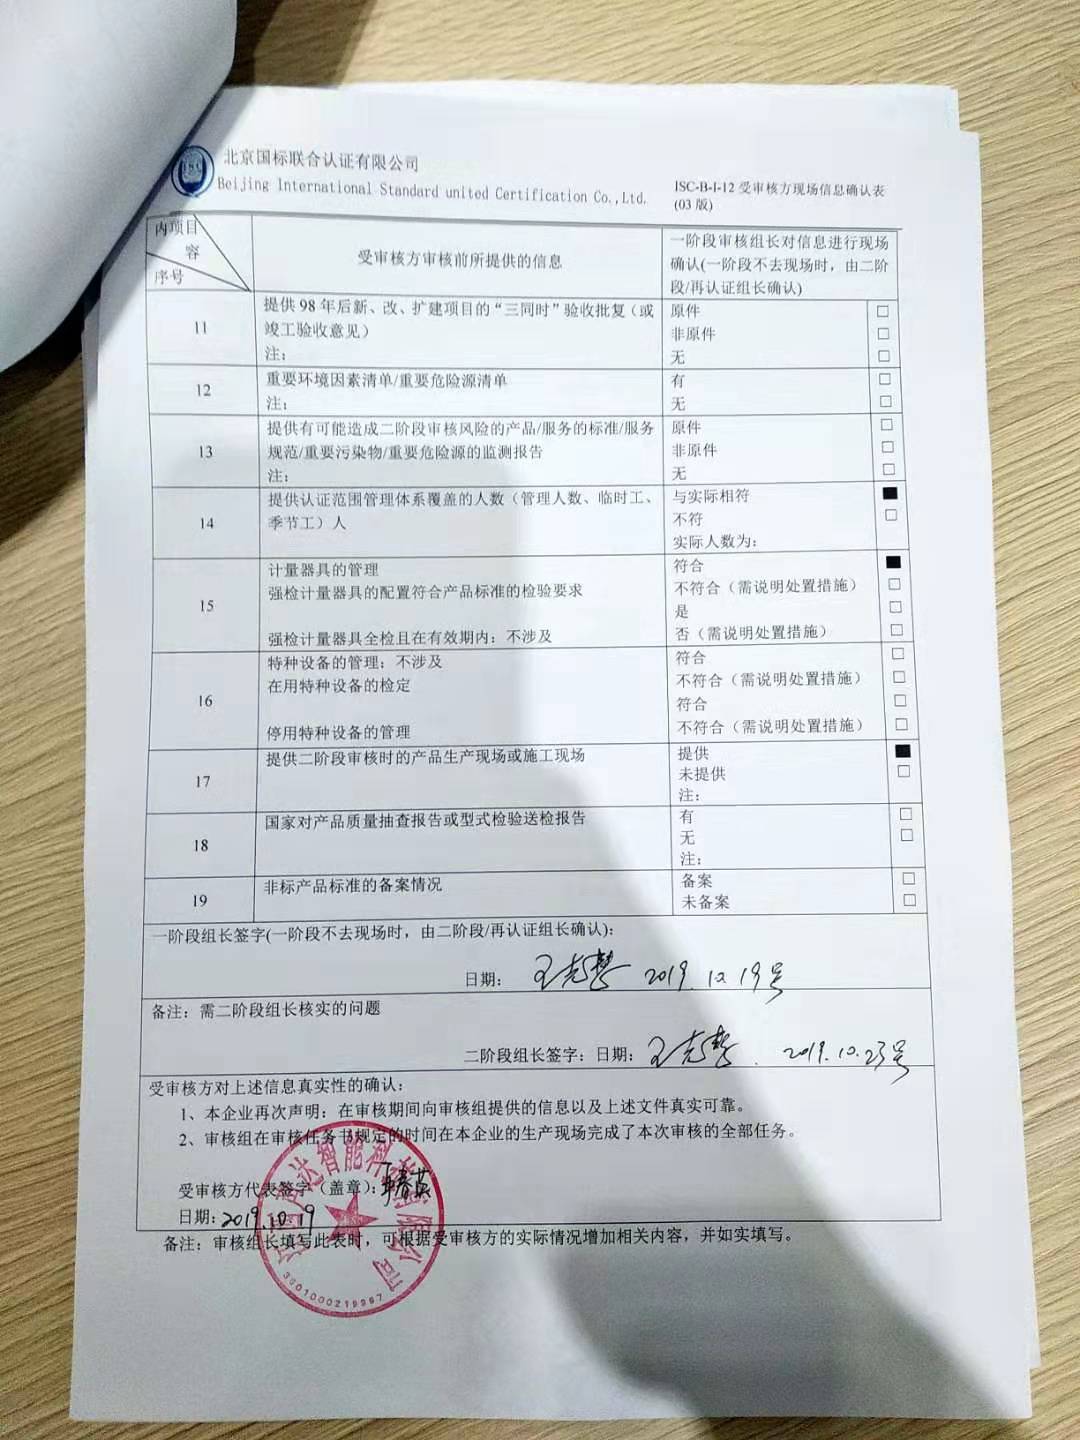 ISC
北京国标联合认证有限公司
Beijing International Standard united Certification Co.,Ltd.
ISC-B-I-12 受审核方现场信息确认表
(03 版)
内项目
容
序号
受审核方审核前所提供的信息
一阶段审核组长对信息进行现场
确认(一阶段不去现场时，由二阶
段/再认证组长确认)
11
提供 98 年后新、改、扩建项目的“三同时”验收批复（或
竣工验收意见）
注：
原件 □
非原件 □
无 □
12
重要环境因素清单/重要危险源清单
注：
有 □
无 □
13
提供有可能造成二阶段审核风险的产品/服务的标准/服务
规范/重要污染物/重要危险源的监测报告
注：
原件 □
非原件 □
无 □
14
提供认证范围管理体系覆盖的人数（管理人数、临时工、
季节工）人
与实际相符 ■
不符 □
实际人数为：
15
计量器具的管理
强检计量器具的配置符合产品标准的检验要求
强检计量器具全检且在有效期内：不涉及
符合 ■
不符合（需说明处置措施） □
是 □
否（需说明处置措施） □
16
特种设备的管理：不涉及
在用特种设备的检定
停用特种设备的管理
符合 □
不符合（需说明处置措施） □
符合 □
不符合（需说明处置措施） □
17
提供二阶段审核时的产品生产现场或施工现场
提供 ■
未提供 □
注：
18
国家对产品质量抽查报告或型式检验送检报告
有 □
无 □
注：
19
非标产品标准的备案情况
备案 □
未备案 □
一阶段组长签字(一阶段不去现场时，由二阶段/再认证组长确认)：
日期： 2019.10.19号
备注：需二阶段组长核实的问题
二阶段组长签字：日期： 2019.10.23号
受审核方对上述信息真实性的确认：
1、本企业再次声明：在审核期间向审核组提供的信息以及上述文件真实可靠。
2、审核组在审核任务书规定的时间在本企业的生产现场完成了本次审核的全部任务。
受审核方代表签字（盖章）：
日期：2019.10.19
备注：审核组长填写此表时，可根据受审核方的实际情况增加相关内容，并如实填写。
达智能科技有限公司